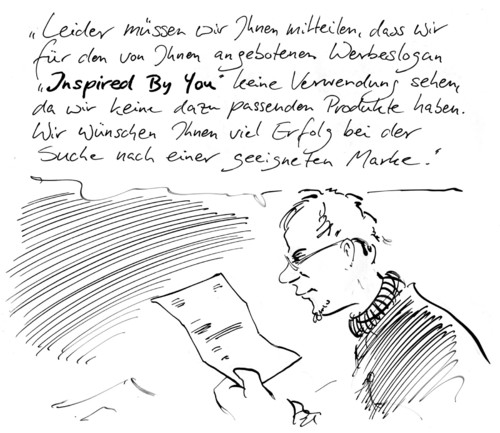 „Leider müssen wir Ihnen mitteilen, dass wir
für den von Ihnen angebotenen Werbeslogan
„Inspired By You" keine Verwendung sehen,
da wir keine dazu passenden Produkte haben.
Wir wünschen Ihnen viel Erfolg bei der
Suche nach einer geeigneten Marke."